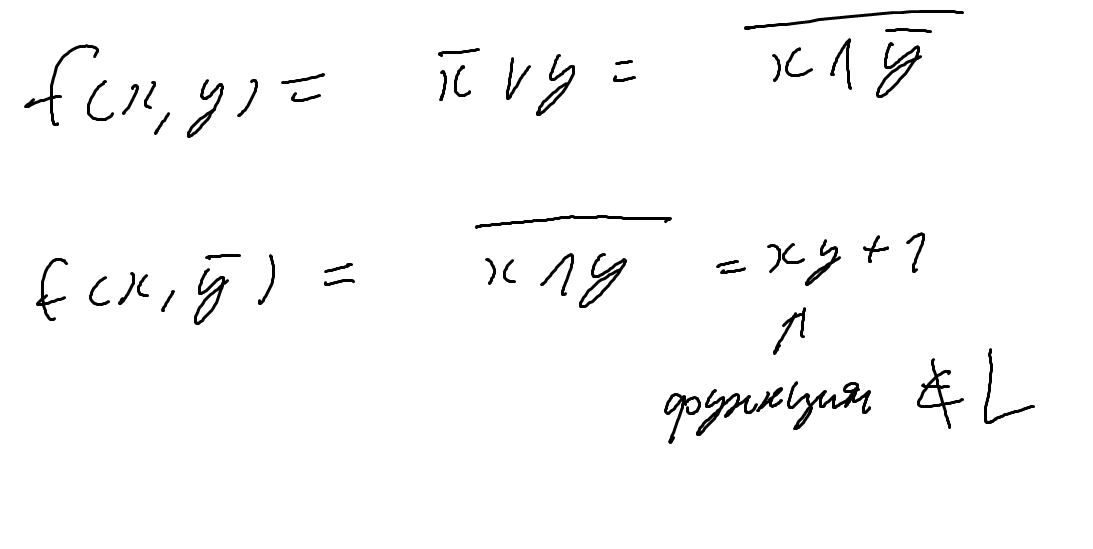 f(x, y) = x̅ ∨ y = \overline{x ∧ y̅}
f(x, y̅) = \overline{x ∧ y} = xy + 1
↑
функция ∉ L